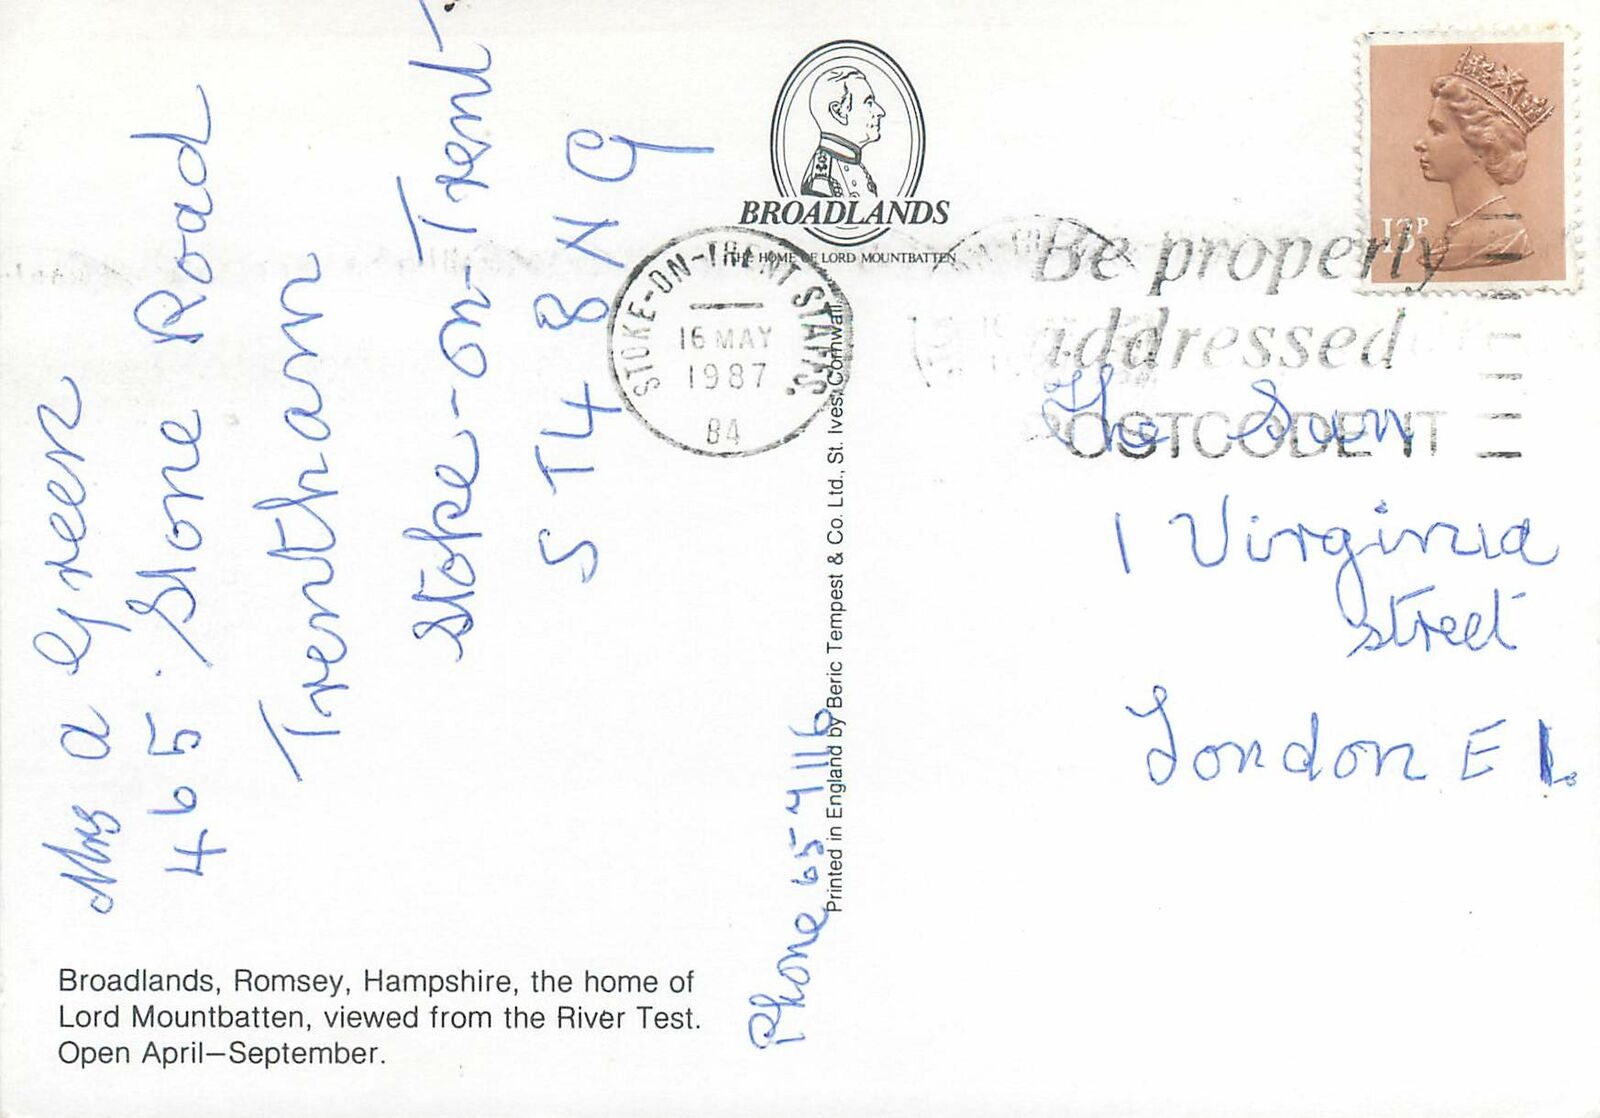 Mrs a Green
465. Stone Road
Trentham
Stoke-on-Trent
ST4 8NG
Phone 657116
BROADLANDS
THE HOME OF LORD MOUNTBATTEN
STOKE-ON-TRENT STAFFS.
16 MAY
1987
84
Be properly
addressed
POSTCODE IT
13P
The Sun
1 Virginia
Street
London E1.
Printed in England by Beric Tempest & Co. Ltd., St. Ives, Cornwall.
Broadlands, Romsey, Hampshire, the home of
Lord Mountbatten, viewed from the River Test.
Open April–September.